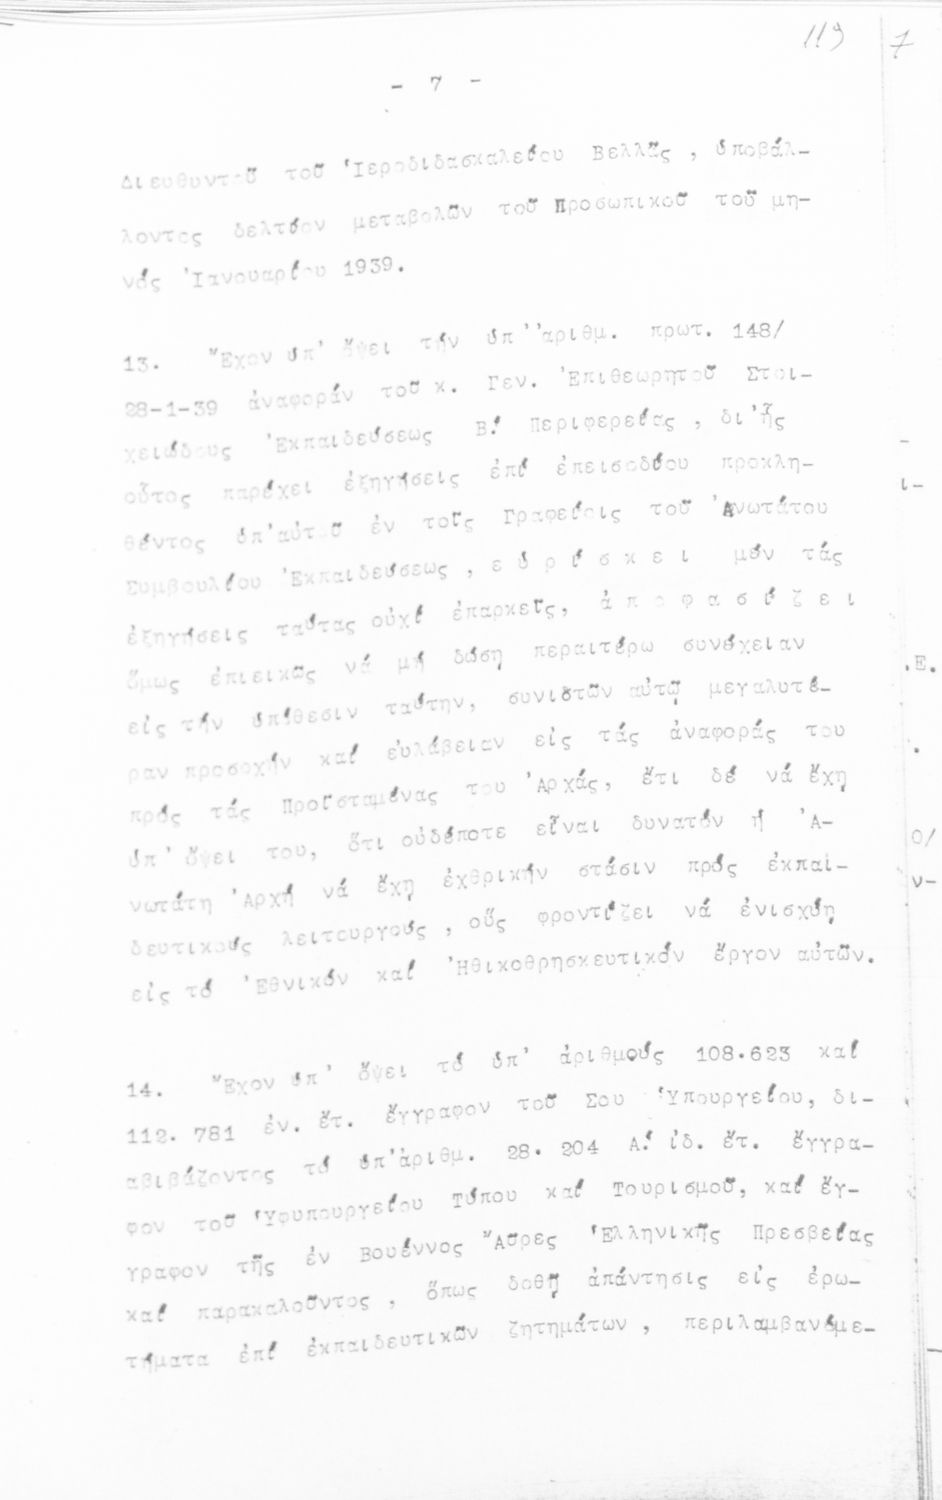 119 7
- 7 -
Διευθυντοῦ τοῦ Ἱεροδιδασκαλείου Βελλᾶς , ὑποβάλ-
λοντος δελτίον μεταβολῶν τοῦ Προσωπικοῦ τοῦ μη-
νός Ἰανουαρίου 1939.
13. Ἔχον ὑπ' ὄψει τήν ὑπ' ἀριθμ. πρωτ. 148/
28-1-39 ἀναφοράν τοῦ κ. Γεν. Ἐπιθεωρητοῦ Στοι-
χειώδους Ἐκπαιδεύσεως Β! Περιφερείας , δι' ἧς
οὗτος παρέχει ἐξηγήσεις ἐπί ἐπεισοδίου προκλη-
θέντος ὑπ' αὐτοῦ ἐν τοῖς Γραφείοις τοῦ Ἀνωτάτου
Συμβουλίου Ἐκπαιδεύσεως , ε ὑ ρ ί σ κ ε ι μέν τάς
ἐξηγήσεις ταύτας οὐχί ἐπαρκεῖς, ἀ π ο φ α σ ί ζ ε ι
ὅμως ἐπιεικῶς νά μή δώσῃ περαιτέρω συνέχειαν
εἰς τήν ὑπόθεσιν ταύτην, συνιστῶν αὐτῷ μεγαλυτέ-
ραν προσοχήν καί εὐλάβειαν εἰς τάς ἀναφοράς του
πρός τάς Προϊσταμένας του Ἀρχάς, ἔτι δέ νά ἔχῃ
ὑπ' ὄψει του, ὅτι οὐδέποτε εἶναι δυνατόν ἡ Ἀ-
νωτάτη Ἀρχή νά ἔχῃ ἐχθρικήν στάσιν πρός ἐκπαι-
δευτικούς λειτουργούς , οὕς φροντίζει νά ἐνισχύῃ
εἰς τό Ἐθνικόν καί Ἠθικοθρησκευτικόν ἔργον αὐτῶν.
14. Ἔχον ὑπ' ὄψει τό ὑπ' ἀριθμούς 108.623 καί
112. 781 ἐν. ἔτ. ἔγγραφον τοῦ Σου Ὑπουργείου, δι-
αβιβάζοντος τό ὑπ' ἀριθμ. 28. 204 Α! ἰδ. ἔτ. ἔγγρα-
φον τοῦ Ὑφυπουργείου Τύπου καί Τουρισμοῦ, καί ἔγ-
γραφον τῆς ἐν Βουέννος Ἄϋρες Ἑλληνικῆς Πρεσβείας
καί παρακαλοῦντος , ὅπως δοθῇ ἀπάντησις εἰς ἐρω-
τήματα ἐπί ἐκπαιδευτικῶν ζητημάτων , περιλαμβανόμε-
ι-
.Ε.
ο/
ν-